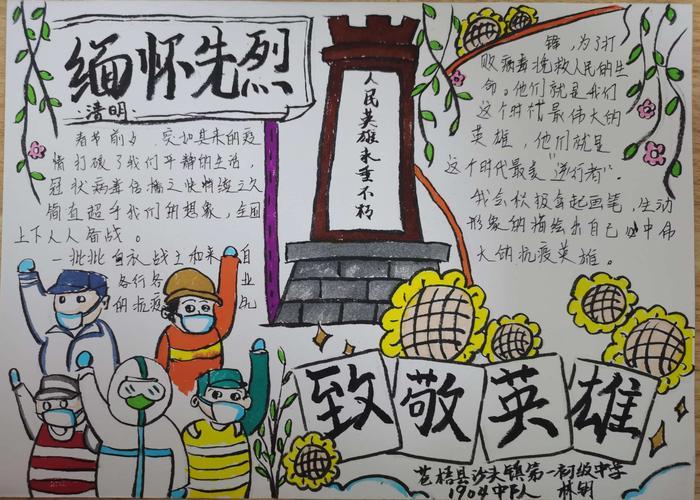 缅怀先烈
清明:
春节前夕,突如其来的疫
情打破了我们平静的生活,
冠状病毒传播之快持续之久
简直超乎我们的想象,全国
上下人人备战。
一批批白衣战士和来自
各行各业
的抗疫
人民英雄永垂不朽
锋,为了打
败病毒挽救人民的生
命。他们就是我们
这个时代最伟大的
英雄,他们就是
这个时代最美"逆行者"。
我会积极拿起画笔,生动
形象的描绘出自己心中伟
大的抗疫英雄。
致敬英雄
苍梧县沙头镇第一初级中学
1904中队 林钥